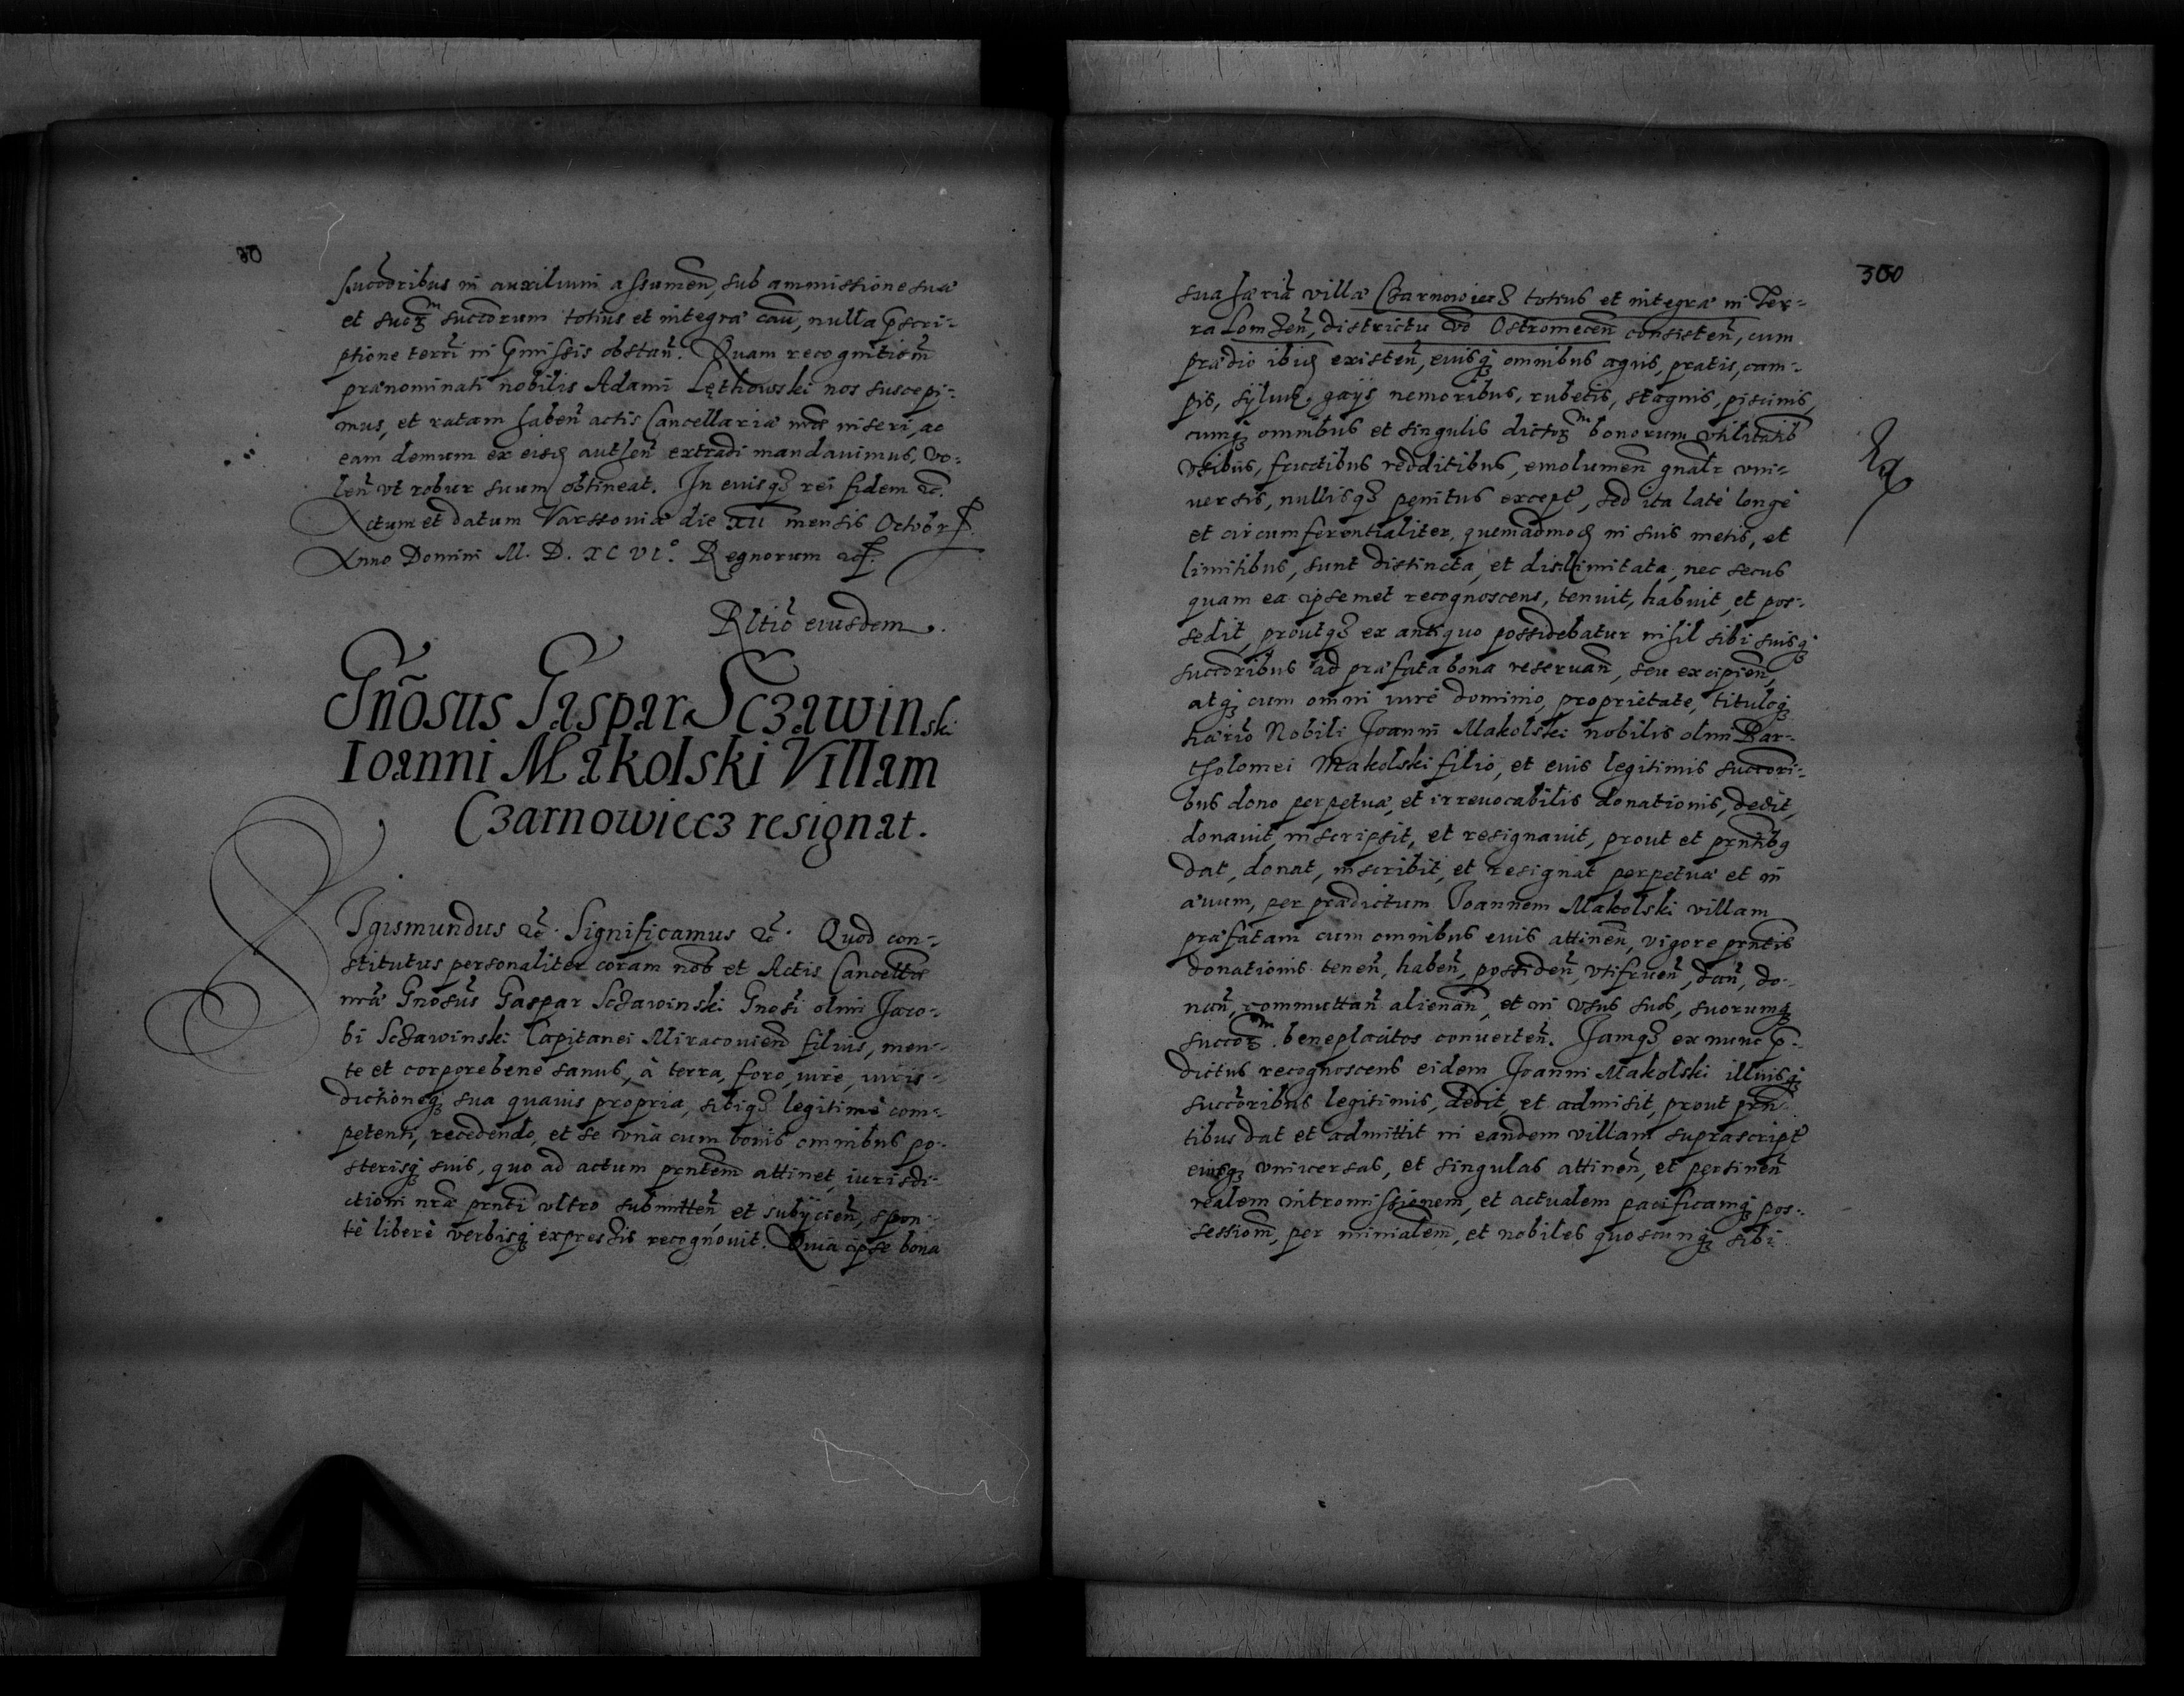 succōribus in auxilium assumen̄, sub ammissione suæ
et sucꝫ succōrum totius et integræ cāu, nulla p̄scri-
ptione terrī in p̄missis obstan̄. Quam recognitiōm
prænominati nobilis Adami Lętkowski nos suscepi-
mus, et ratam haben̄ actis Cancellariæ nr̄æ inseri, ac
eam demum ex eisd authen̄ extradi mandauimus, vo-
len̄ vt robur suum obtineat. In cuius qꝫ rei fidem ꝛc̄.
Actum et datum Varssouiæ die XII mensis Octobr
Anno Domini M. D. XC VI.° Regnorum ꝛc
Rltiō eiusdem.
Gñosus Gaspar Sczawinski
Ioanni Makolski Villam
Czarnowiecz resignat.
SIgismundus ꝛc̄. Significamus ꝛc̄. Quod con-
stitutus personaliter coram nob̄ et Actis Cancelltis
nrīs Gnosus Gaspar Sczawinski Gnosi olim Jaco-
bi Sczawinski Capitanei Miracouien̄ filius, men-
te et corpore bene sanus, à terra, foro, iure, iuris-
dictioneqꝫ sua quauis propria, sibiqꝫ legitimè com-
petenti, recedendo, et se vnà cum bonis omnibus po-
sterisqꝫ suis, quo ad actum prntēm attinet, iurisdi-
ctioni nr̄æ prnti vltro submitten̄, et subijcien̄, spon-
tè liberè verbisqꝫ expressis recognouit. Quia ipse bona
300
sua hæriā villæ Czarnowiecz totius et integræ in Ter-
ra Lomzen̄, districtu vō Ostromecen̄ consisten̄, cum
prædio ibid existen̄, eiusqꝫ omnibus agris, pratis, cam-
pis, syluis, gays nemoribus, rubetis, stagnis, piscinis,
cumqꝫ omnibus et singulis dictoꝝ bonorum vtilitatib
vsibus, fructibus redditibus, emolumen̄ gnalr vni-
uersis, nullisqꝫ penitus except, sed ita latè longè
et circumferentialiter, quemadmod in suis metis, et
limitibus, sunt distincta, et dislimitata, nec secus
quam ea ipsemet recognoscens, tenuit, habuit, et pos-
sedit, proutqꝫ ex antiquo possidebatur nihil sibi suisqꝫ
succōribus ad præfata bona reseruan̄, seu excipien̄,
atqꝫ cum omni iure dominio, proprietate, tituloqꝫ
hæriō Nobili Joanni Makolski nobilis olim Bar-
tholomei Makolski filio, et eius legitimis succōri-
bus dono perpetuæ, et irreuocabilis donationis, dedit,
donauit, inscripsit, et resignauit, prout et prntibq
dat, donat, inscribit, et resignat perpetuæ et in
æuum, per prædictum Joannem Makolski villam
præfatam cum omnibus eius attinen̄, vigore prntis
donationis tenen̄, haben̄, possiden̄, vtifruen̄, dan̄, do-
nan̄, commuttan̄ alienan̄, et in vsus suos, suorumqꝫ
succōꝝ beneplacitos conuerten̄. Jamqꝫ ex nunc p̄-
dictus recognoscens eidem Joanni Makolski illiusqꝫ
succōribus legitimis, dedit, et admisit, prout prn-
tibus dat et admittit in eandem villam suprascript
eiusqꝫ vniuersas, et singulas attinen̄, et pertinen̄
realem intromissionem, et actualem pacificamqꝫ pos-
sessiom̄, per minialem, et nobiles quoscunqꝫ sibi